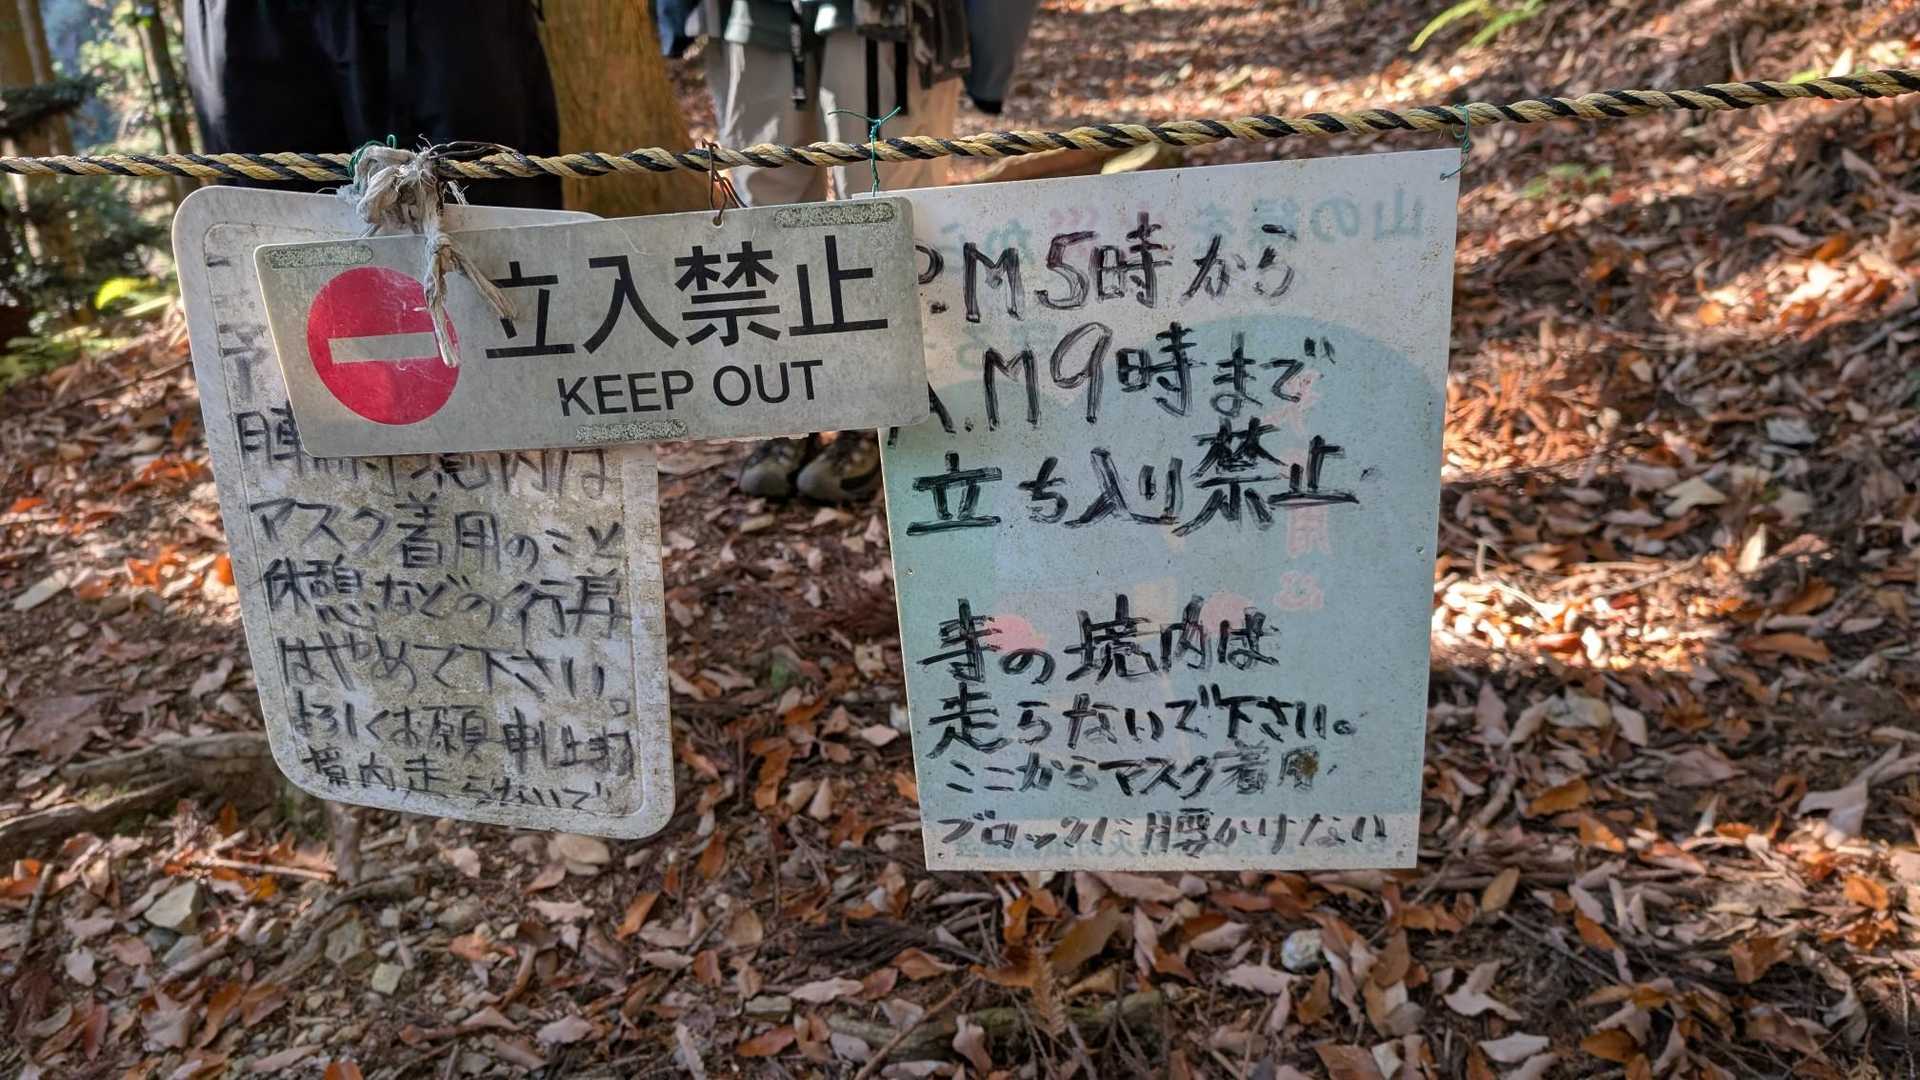 立入禁止
KEEP OUT
境内は
マスク着用のこと
休憩などの行為
はやめて下さい。
よろしくお願申上ます
境内走らないで
P.M5時から
A.M9時まで
立ち入り禁止
寺の境内は
走らないで下さい。
ここからマスク着用
ブロックに腰かけない